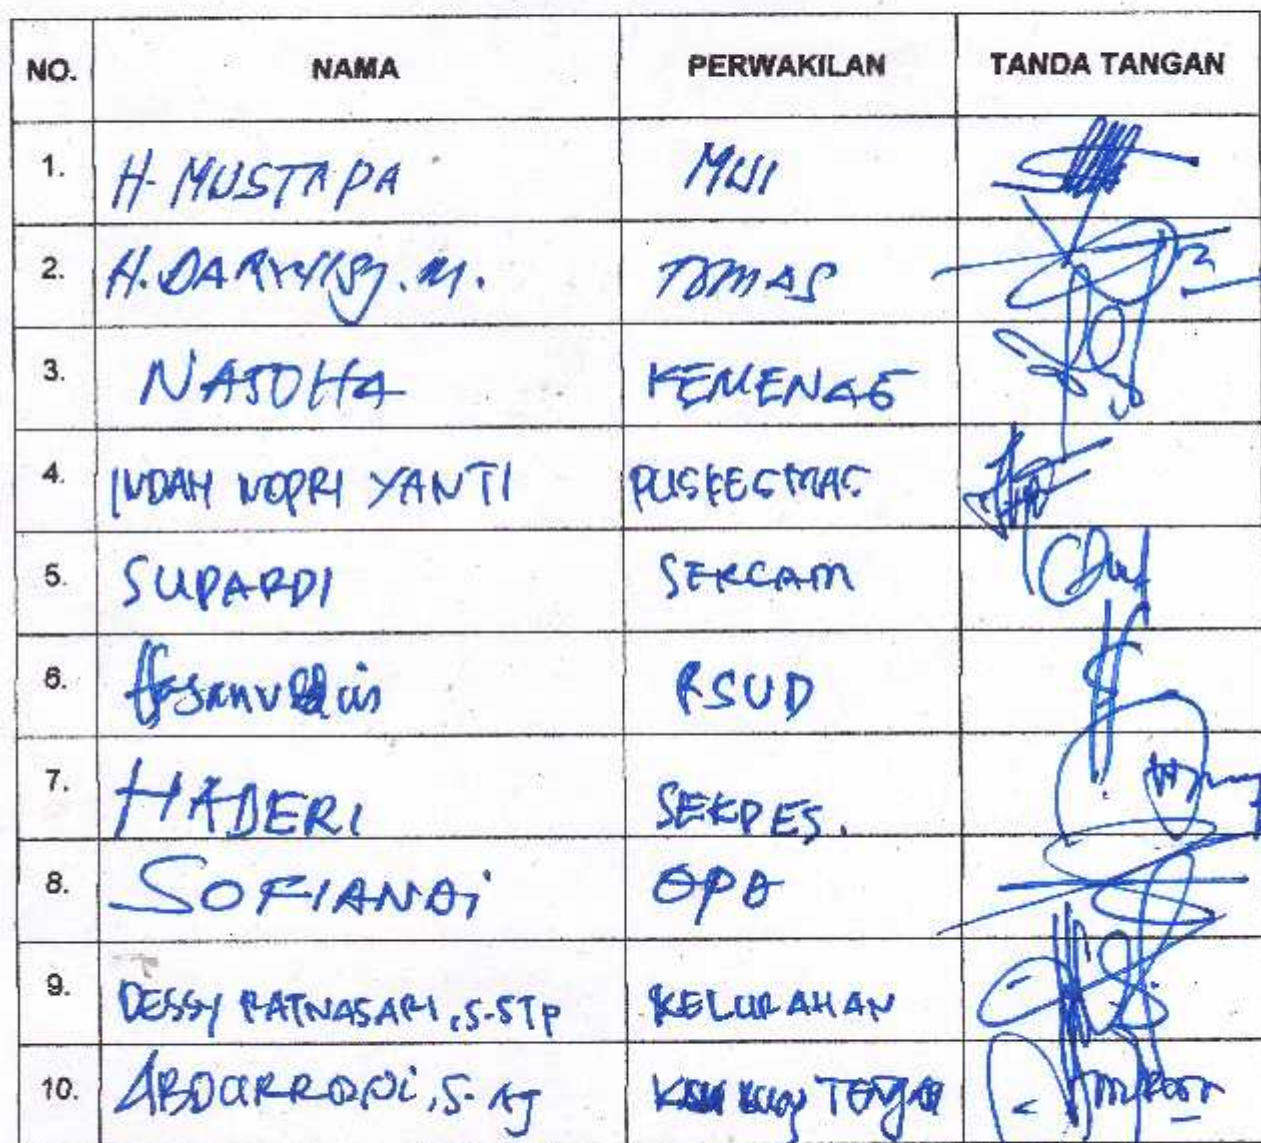 NO. NAMA PERWAKILAN TANDA TANGAN
1. H. MUSTAPA MUI
2. H. DARWISY. M. TOMAS
3. NASOHA KEMENAG
4. INDAH NOPRI YANTI PUSKESMAS
5. SUPARDI SEKCAM
6. Hasanuddin RSUD
7. HADERI SEKDES.
8. SOFIANDI OPD
9. DESSY RATNASARI, S.STP KELURAHAN
10. ABDURRONI, S.Ag TENGAH